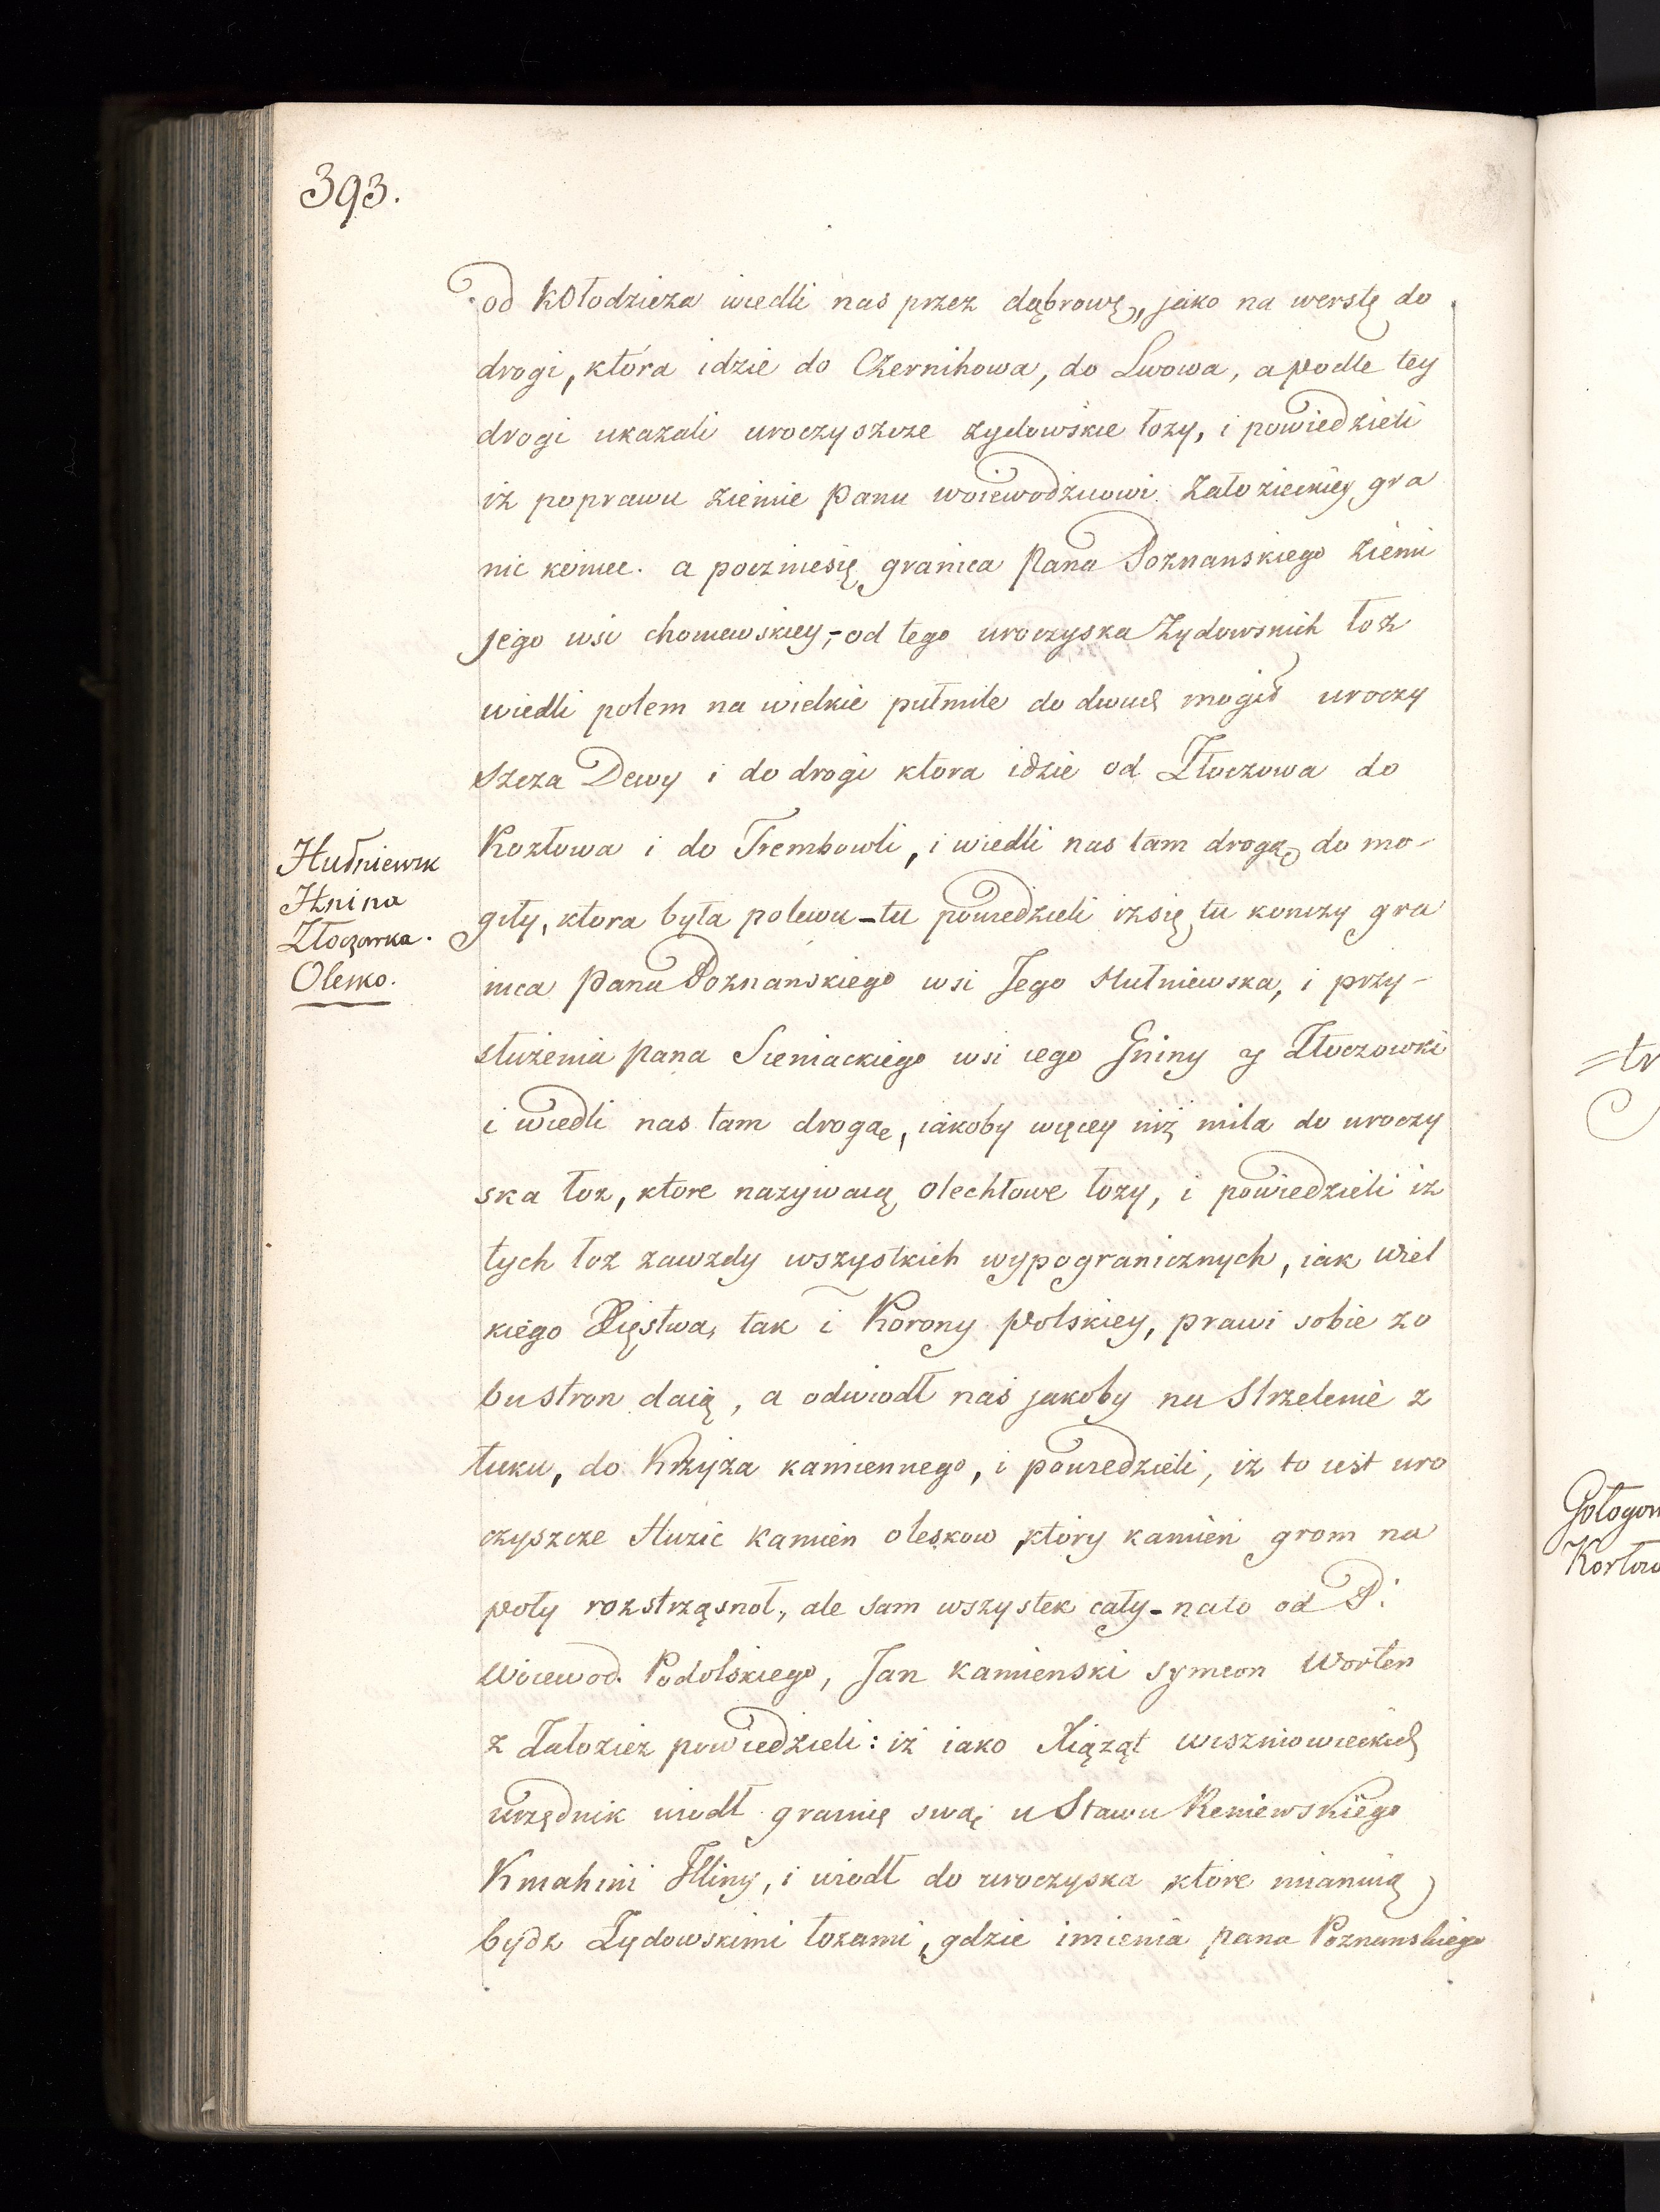 393.
od Kołodzieża wiedli nas przez dąbrowę, jako na werstę do
drogi, która idzie do Czernihowa, do Lwowa, a podle tey
drogi ukazali uroczyszcze żydowskie łozy, i powiedzieli
iż poprawu ziemie panu woiewodzicowi Załozieckiey gra
nic koniec. a poczniesię granica Pana Poznanskiego ziemi
jego wsi chomewskiey,- od tego uroczyska Żydowskich łoz
wiedli polem na wielkie pułmile do dwuch mogił uroczy
szcza Dewy i do drogi ktora idzie od Złoczowa do
Kozłowa i do Trembowli, i wiedli nas tam drogą do mo-
giły, ktora była polewu - tu powiedzieli iżsię tu konczy gra
nica pana Poznańskiego wsi Jego Hutniewska, i przy-
służenia pana Sieniackiego wsi iego Gniny y Złoczowki
i wiedli nas tam drogąę, iakoby więcey niż mila do uroczy
ska łoz, ktore nazywaią olechłowe łozy, i powiedzieli iż
tych łoz zawzdy wszystkich wypogranicznych, iak wiel
kiego Xięstwa, tak i Korony polskiey, prawi sobie zo
bustron daią, a odwiodł nas jakoby na Strzelenie z
łuku, do Krzyża kamiennego, i powiedzieli, iż to iest uro
czyszcze Huzic Kamien oleskow, który kamień grom na
poły rozstrząsnoł, ale sam wszystek cały - nato od P:
Woiewod. Podolskiego, Jan Kamienski symeon Worten
z Załoziez powiedzieli: iż iako Xiążąt wiszniowieckich
urzędnik wiodł granię swą u Stawu Reniewskiego
Kmahini Hliny, i wiodł do uroczyska, ktore mianuią
bydz Żydowskimi łozami, gdzie imienia pana Poznanskiego
Hutniewsk
Hnina
Złoczowka.
Olesko.